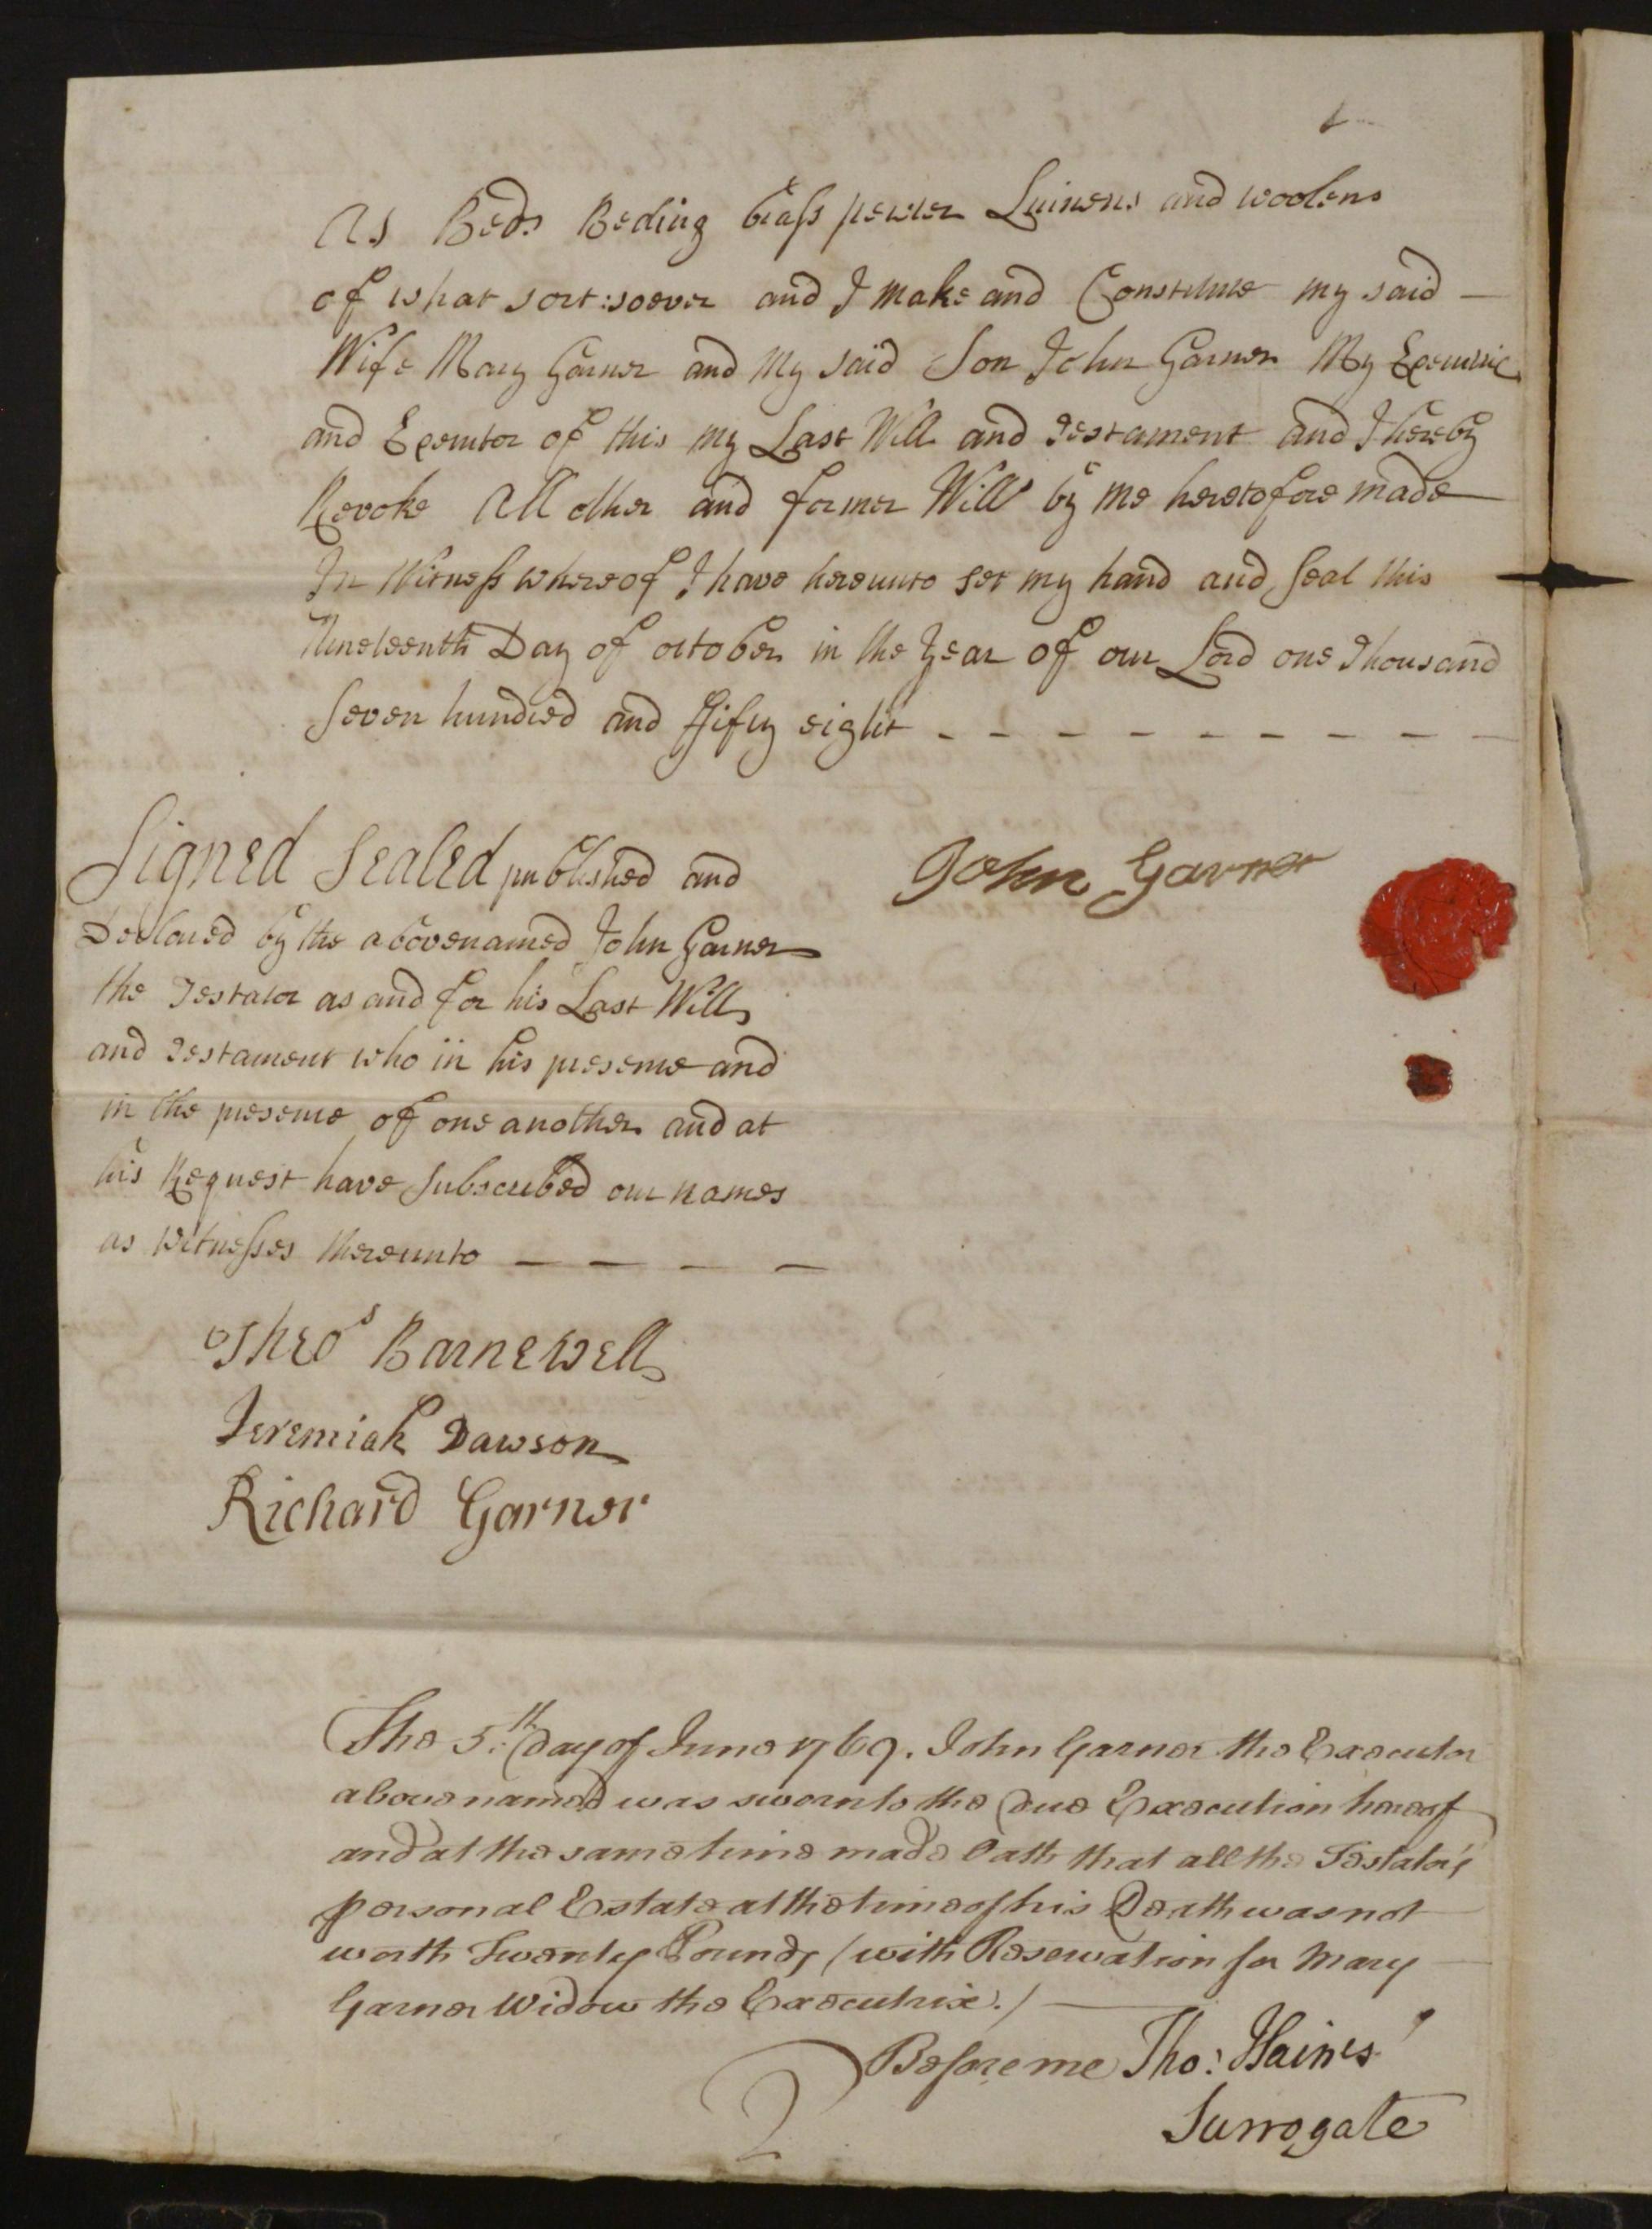 As Beds Beding brass pewter Luinens and woolens
of what sort:soever and I make and Constitute my said —
Wife Mary Garner and my said Son John Garner My Executrix
and Executor of this my Last Will and Testament and I hereby
Revoke All other and former Wills by me heretofore made
In Witness whereof I have hereunto set my hand and seal this
Nineteenth Day of october in the Year of our Lord one Thousand
Seven hundred and ffifty eight - - - - - - - - - -
Signed Sealed published and
Declared by the abovenamed John Garner
the Testator as and for his Last Will
and Testament who in his presence and
in the presence of one another and at
his Request have subscribed our names
as witnesses thereunto — — — —
John Garner
Theos Barnewell
Jeremiah Dawson
Richard Garner
The 5th. Day of June 1769. John Garner the Executor
abovenamed was sworn to the due Execution hereof
and at the same time made Oath that all the Testator's
personal Estate at the time of his Death was not
worth Twenty Pounds (with Reservation for Mary
Garner Widow the Executrix.) —
Before me Tho: Haines
Surrogate
2